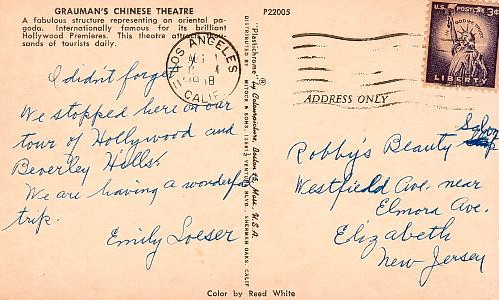 GRAUMAN'S CHINESE THEATRE
A fabulous structure representing an oriental pa-
goda. Internationally famous for its brilliant
Hollywood Premieres. This theatre attracts
sands of tourists daily.
P22005
LOS ANGELES
CALIF
U.S. POSTAGE 3¢
IN GOD WE TRUST
LIBERTY
ADDRESS ONLY
I didn't forget
We stopped here on our
tour of Hollywood and
Beverley Hills.
We are having a wonderful
trip.
Emily Loeser
"Plastichrome" by Colourpicture, Boston 15, Mass. U.S.A.
DISTRIBUTED BY MITOCK & SONS, VENTURA BLVD. SHERMAN OAKS, CALIF
Robby's Beauty Salon
Westfield Ave. near
Elmora Ave.
Elizabeth
New Jersey
Color by Reed White